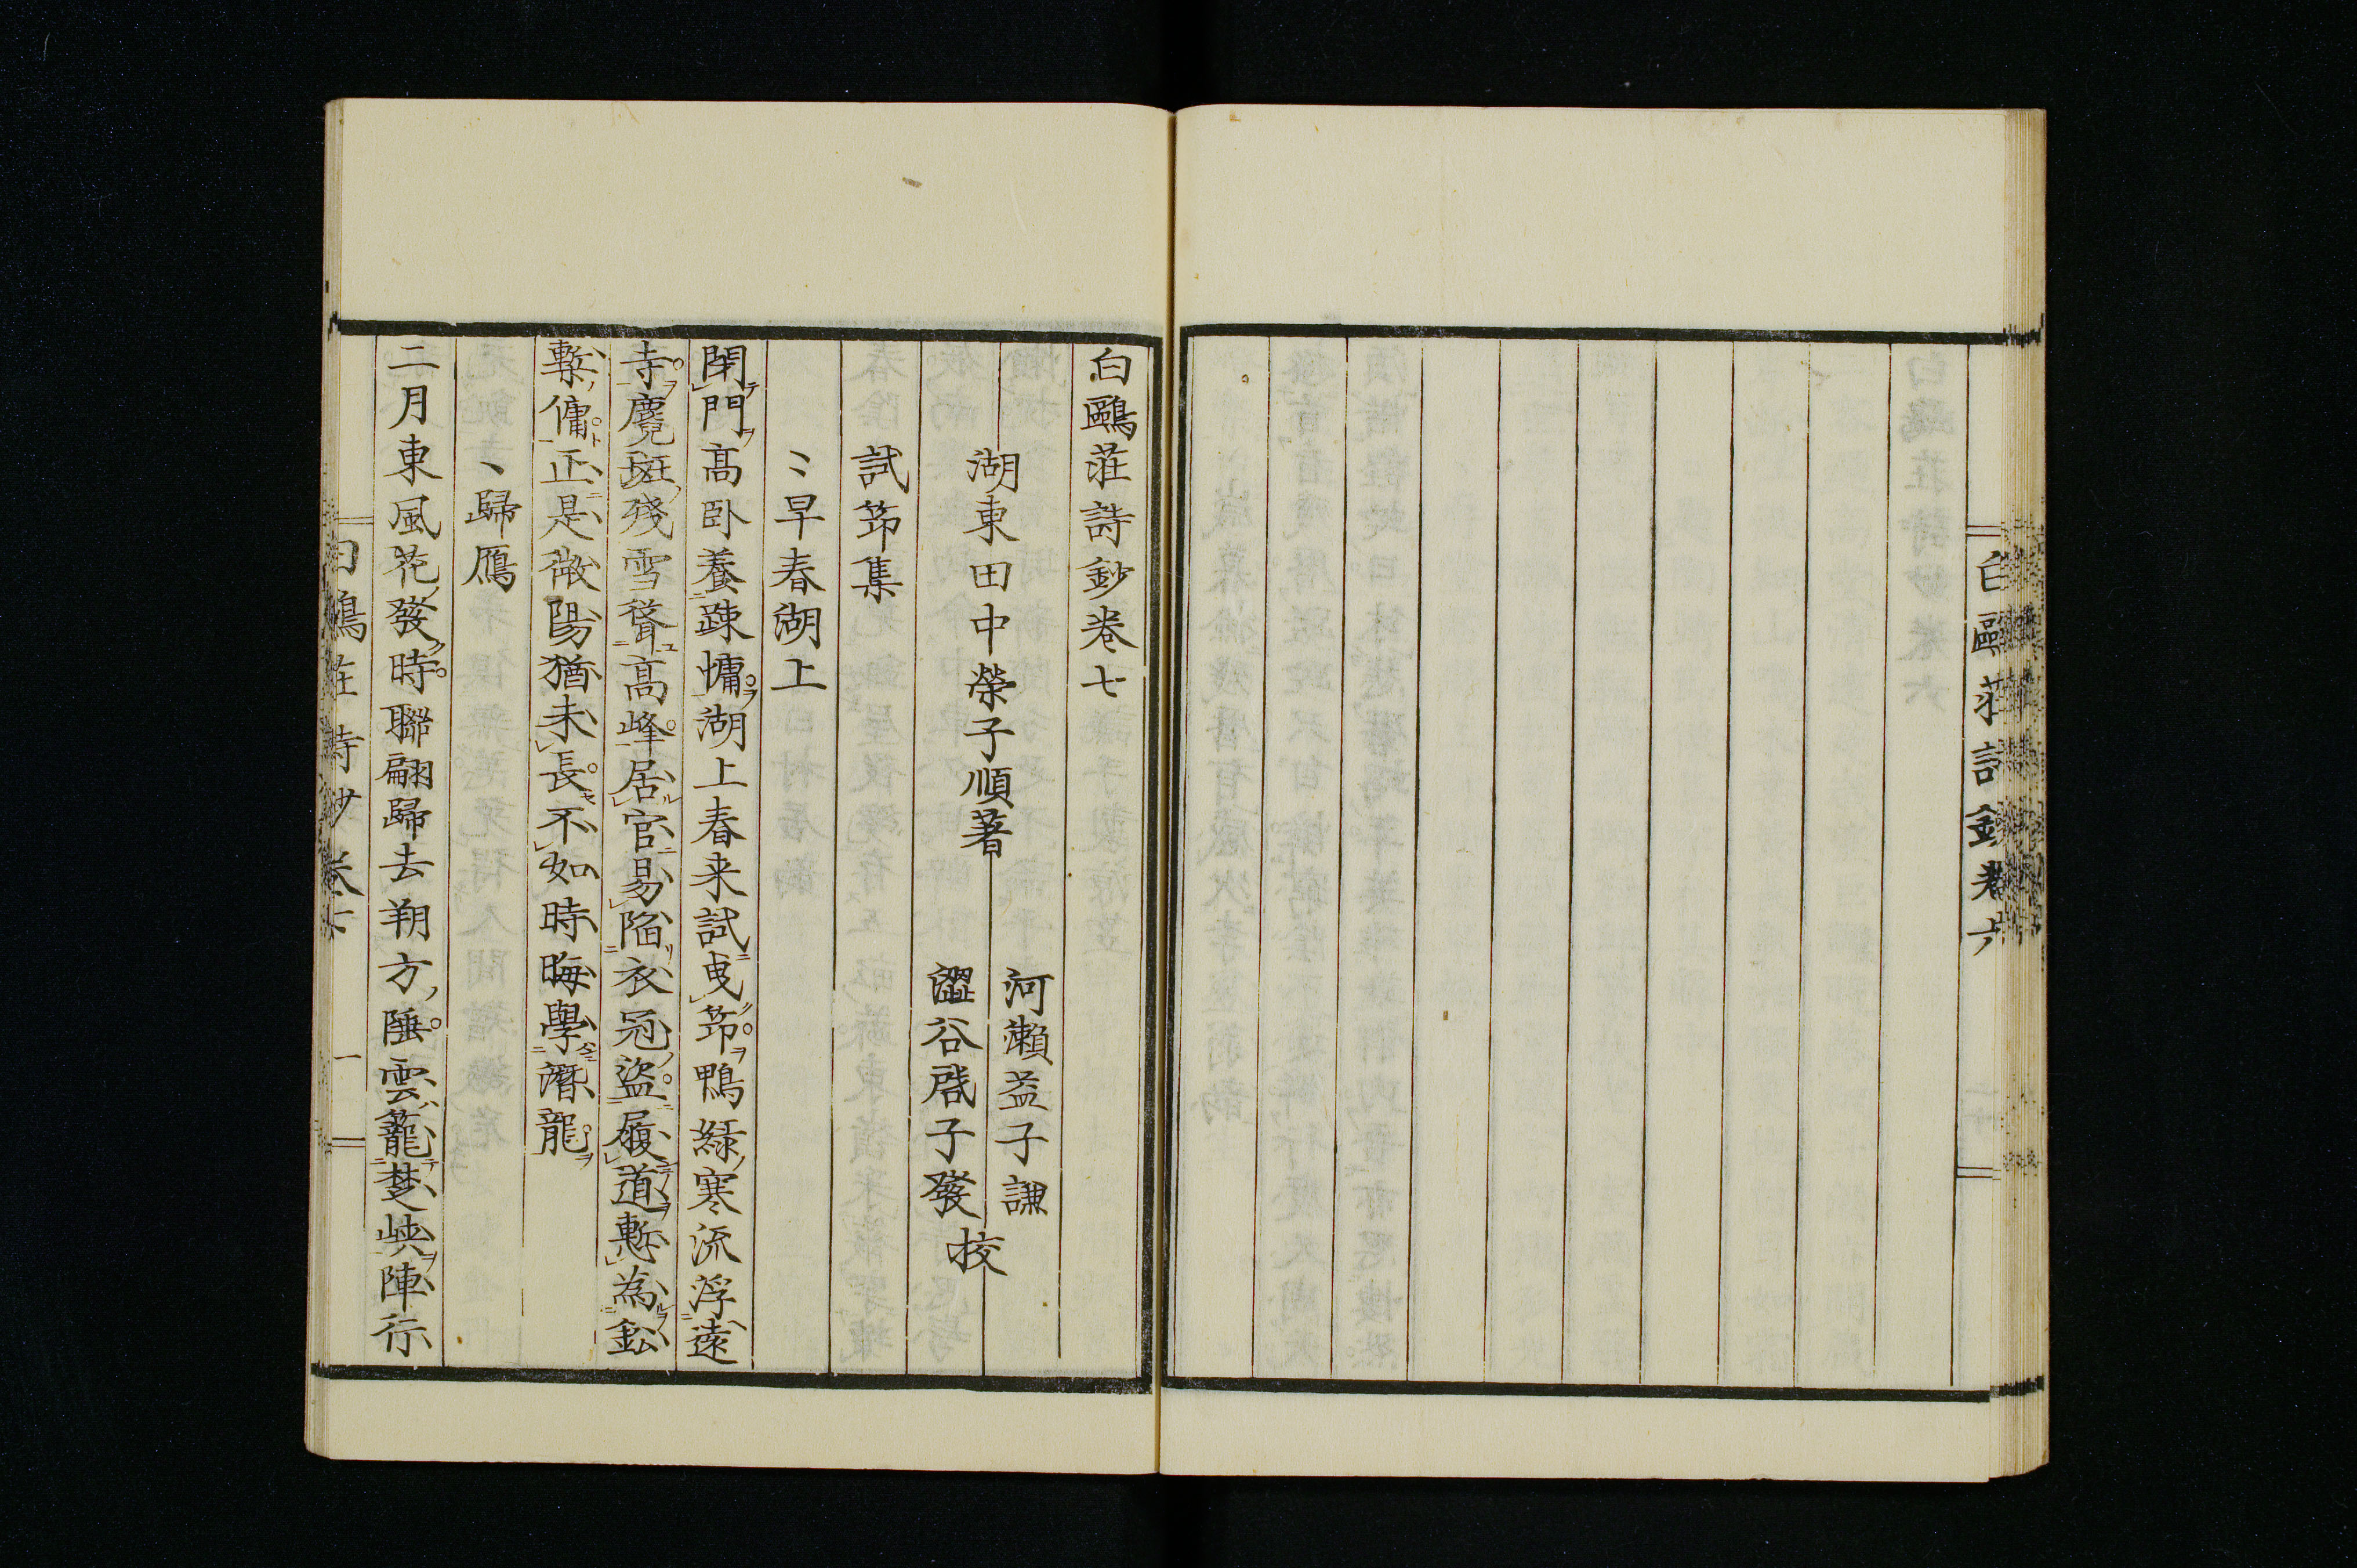 白鷗莊詩鈔卷六
白鷗莊詩鈔卷七
湖東田中榮子順著
河瀨益子謙
澀谷啟子發
校
試筇集
〻早春湖上
閉門高卧養踈慵湖上春来試曳筇鴨綠寒流浮遠
寺麑斑殘雪聳高峰居官易陷衣冠盜履道慙為鈆
槧傭正是微陽猶未長不如時晦學潛龍
丶歸鴈
二月東風花發時聯翩歸去朔方陲雲籠楚峽陣行
白鷗莊詩鈔卷七
一